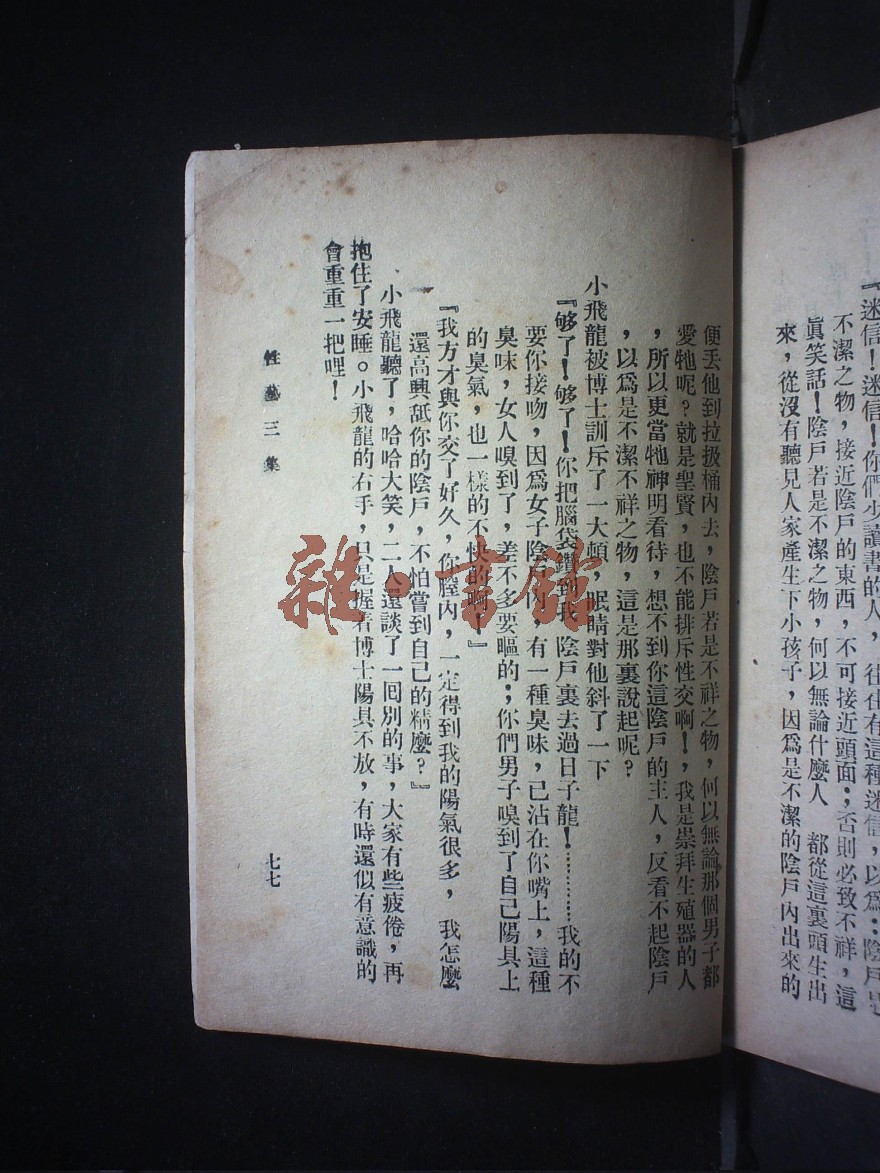 『迷信！迷信！你們少讀書的人，往往有這種迷信，以爲：陰戶是
不潔之物，接近陰戶的東西，不可接近頭面；否則必致不祥，這
眞笑話！陰戶若是不潔之物，何以無論什麼人 都從這裏頭生出
來，從沒有聽見人家產生下小孩子，因爲是不潔的陰戶內出來的
便丟他到拉圾桶內去，陰戶若是不祥之物，何以無論那個男子都
愛牠呢？就是聖賢，也不能排斥性交啊！，我是崇拜生殖器的人
，所以更當牠神明看待，想不到你這陰戶的主人，反看不起陰戶
，以爲是不潔不祥之物，這是那裏說起呢？
小飛龍被博士訓斥了一大頓，眠睛對他斜了一下
『够了！够了！你把腦袋鑽到我 陰戶裏去過日子龍！…………我的不
要你接吻，因爲女子陰戶內，有一種臭味，已沾在你嘴上，這種
臭味，女人嗅到了，差不多要嘔的；你們男子嗅到了自己陽具上
的臭氣，也一樣的不快的啊！』
『我方才與你交了好久，你膣內，一定得到我的陽氣很多，我怎麼
還高興舐你的陰戶，不怕嘗到自己的精麼？』
小飛龍聽了，哈哈大笑，二人還談了一囘別的事，大家有些疲倦，再
抱住了安睡。小飛龍的右手，只是握着博士陽具不放，有時還似有意識的
會重重一把哩！
性藝三集
七七
雜·書館